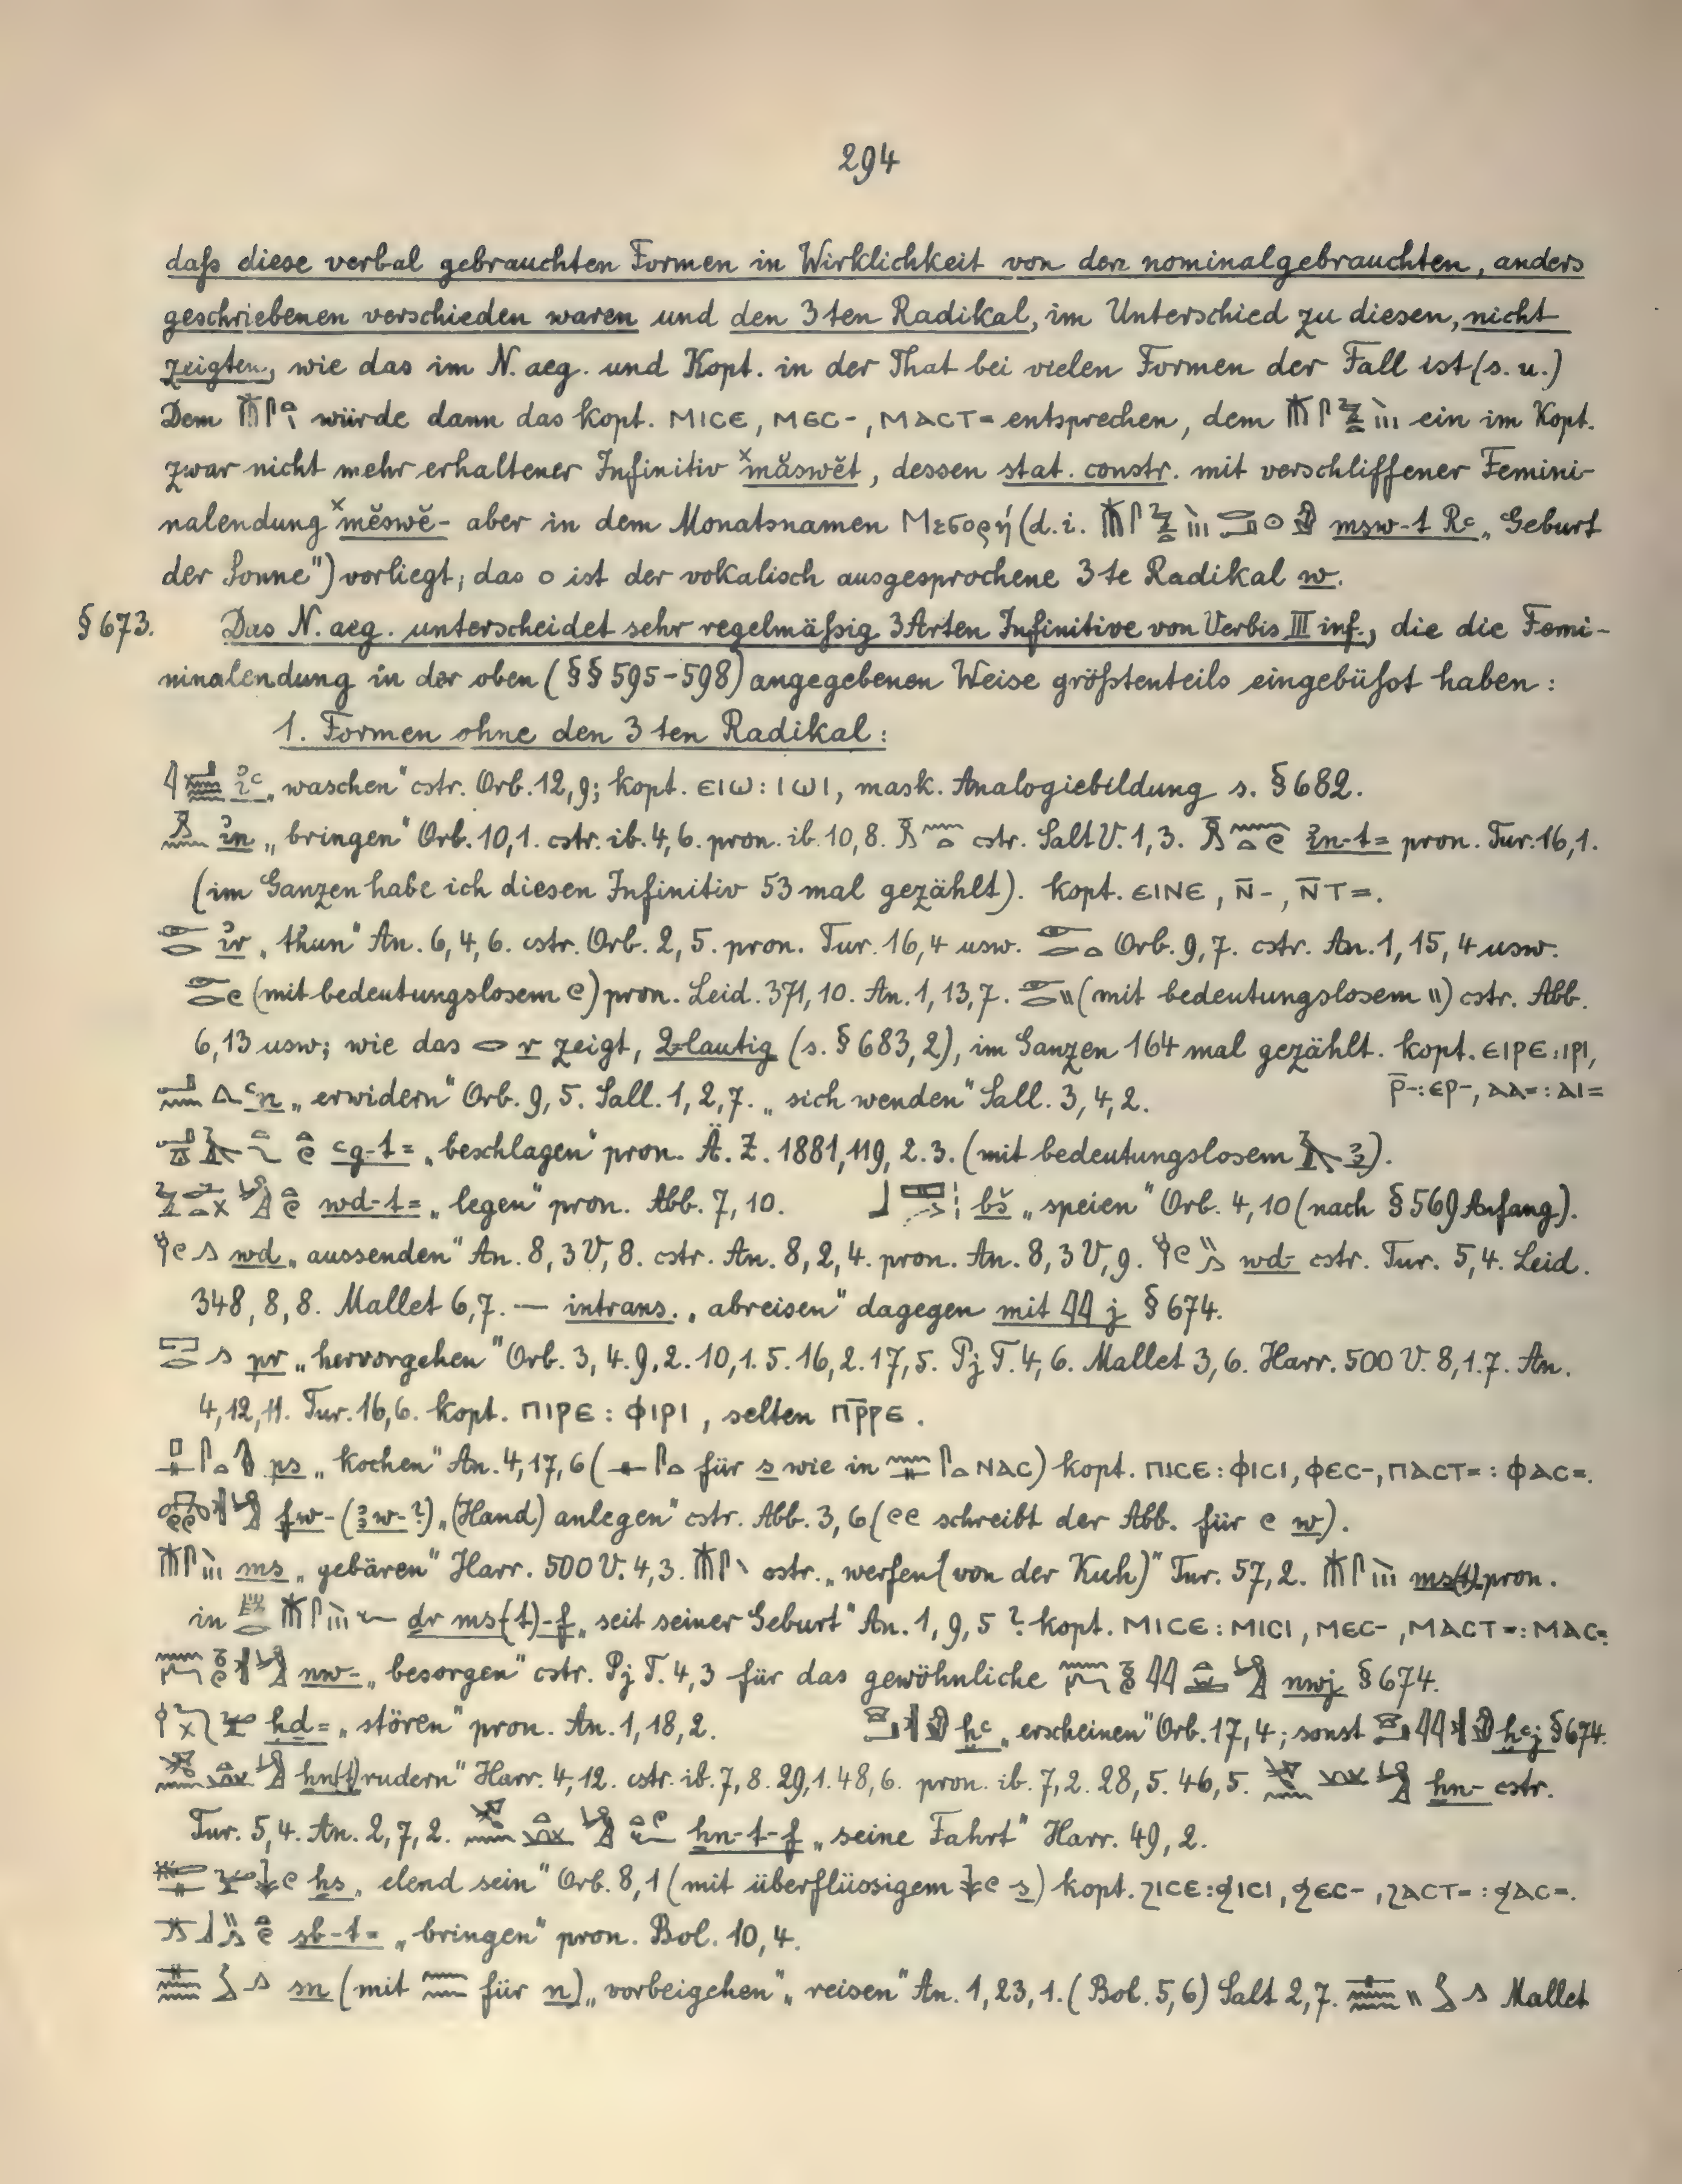 294
daß diese verbal gebrauchten Formen in Wirklichkeit von den nominalgebrauchten, anders
geschriebenen verschieden waren und den 3ten Radikal, im Unterschied zu diesen, nicht
zeigten, wie das im N.aeg. und Kopt. in der That bei vielen Formen der Fall ist (s.u.)
Dem würde dann das kopt. ⲘⲒⲤⲈ, ⲘⲈⲤ-, ⲘⲀⲤⲦ= entsprechen, dem ein im Kopt.
zwar nicht mehr erhaltener Infinitiv ˣmăswĕt, dessen stat. constr. mit verschliffener Femini-
nalendung ˣmĕswĕ- aber in dem Monatsnamen Μεσορή (d.i. msw-t Rꜥ „Geburt
der Sonne") vorliegt; das o ist der vokalisch ausgesprochene 3te Radikal w.
§673. Das N.aeg. unterscheidet sehr regelmäßig 3 Arten Infinitive von Verbis III inf., die die Femi-
ninalendung in der oben (§§595-598) angegebenen Weise größtenteils eingebüßt haben:
1. Formen ohne den 3ten Radikal:
ꞽꜥ „waschen" cstr. Orb. 12,9; kopt. ⲈⲒⲰ: ⲒⲰⲒ, mask. Analogiebildung s. §682.
ꞽn „bringen" Orb. 10,1. cstr. ib. 4,6. pron. ib. 10,8. cstr. Salt V. 1,3. ꞽn-t= pron. Tur. 16,1.
(im Ganzen habe ich diesen Infinitiv 53 mal gezählt). kopt. ⲈⲒⲚⲈ, Ⲛ̄-, Ⲛ̄Ⲧ=.
ꞽr „thun" An. 6,4,6. cstr. Orb. 2,5. pron. Tur. 16,4 usw. Orb. 9,7. cstr. An. 1,15,4 usw.
(mit bedeutungslosem) pron. Leid. 371,10. An. 1,13,7. (mit bedeutungslosem) cstr. Abb.
6,13 usw; wie das r zeigt, 2-lautig (s. §683,2), im Ganzen 164 mal gezählt. kopt. ⲈⲒⲢⲈ: ⲒⲢⲒ,
ꜥn „erwidern" Orb. 9,5. Sall. 1,2,7. „sich wenden" Sall. 3,4,2. Ⲣ̄-: ⲈⲢ-, ⲀⲀ=: ⲀⲒ=
ꜥg-t= „beschlagen" pron. Ä.Z. 1881,119,2.3. (mit bedeutungslosem ꜣ).
wd-t= „legen" pron. Abb. 7,10. bš „speien" Orb. 4,10 (nach §569 Anfang).
wd „aussenden" An. 8,3V,8. cstr. An. 8,2,4. pron. An. 8,3V,9. wd- cstr. Tur. 5,4. Leid.
348,8,8. Mallet 6,7. — intrans. „abreisen" dagegen mit j §674.
pr „hervorgehen" Orb. 3,4.9,2.10,1.5.16,2.17,5. Pj T. 4,6. Mallet 3,6. Harr. 500 V. 8,1.7. An.
4,12,11. Tur. 16,6. kopt. ⲠⲒⲢⲈ: ⲪⲒⲢⲒ, selten ⲠⲢ̄ⲢⲈ.
ps „kochen" An. 4,17,6 (für s wie in ⲚⲀⲤ) kopt. ⲠⲒⲤⲈ: ⲪⲒⲤⲒ, ⲪⲈⲤ-, ⲠⲀⲤⲦ=: ⲪⲀⲤ=.
fw- (ꜣw-?) „(Hand) anlegen" cstr. Abb. 3,6 (schreibt der Abb. für w).
ms „gebären" Harr. 500 V. 4,3. cstr. „werfen (von der Kuh)" Tur. 57,2. ms(t) pron.
in dr ms(t)-f „seit seiner Geburt" An. 1,9,5? kopt. ⲘⲒⲤⲈ: ⲘⲒⲤⲒ, ⲘⲈⲤ-, ⲘⲀⲤⲦ=: ⲘⲀⲤ=
nw- „besorgen" cstr. Pj T. 4,3 für das gewöhnliche nwj §674.
hd= „stören" pron. An. 1,18,2. ḫꜥ „erscheinen" Orb. 17,4; sonst ḫꜥj §674.
hn(t) „rudern" Harr. 4,12. cstr. ib. 7,8.29,1.48,6. pron. ib. 7,2.28,5.46,5. hn- cstr.
Tur. 5,4. An. 2,7,2. hn-t-f „seine Fahrt" Harr. 49,2.
hs „elend sein" Orb. 8,1 (mit überflüssigem s) kopt. ϨⲒⲤⲈ: ϦⲒⲤⲒ, ϦⲈⲤ-, ϨⲀⲤⲦ=: ϦⲀⲤ=.
sb-t= „bringen" pron. Bol. 10,4.
sn (mit für n) „vorbeigehen" „reisen" An. 1,23,1. (Bol. 5,6) Salt 2,7. Mallet